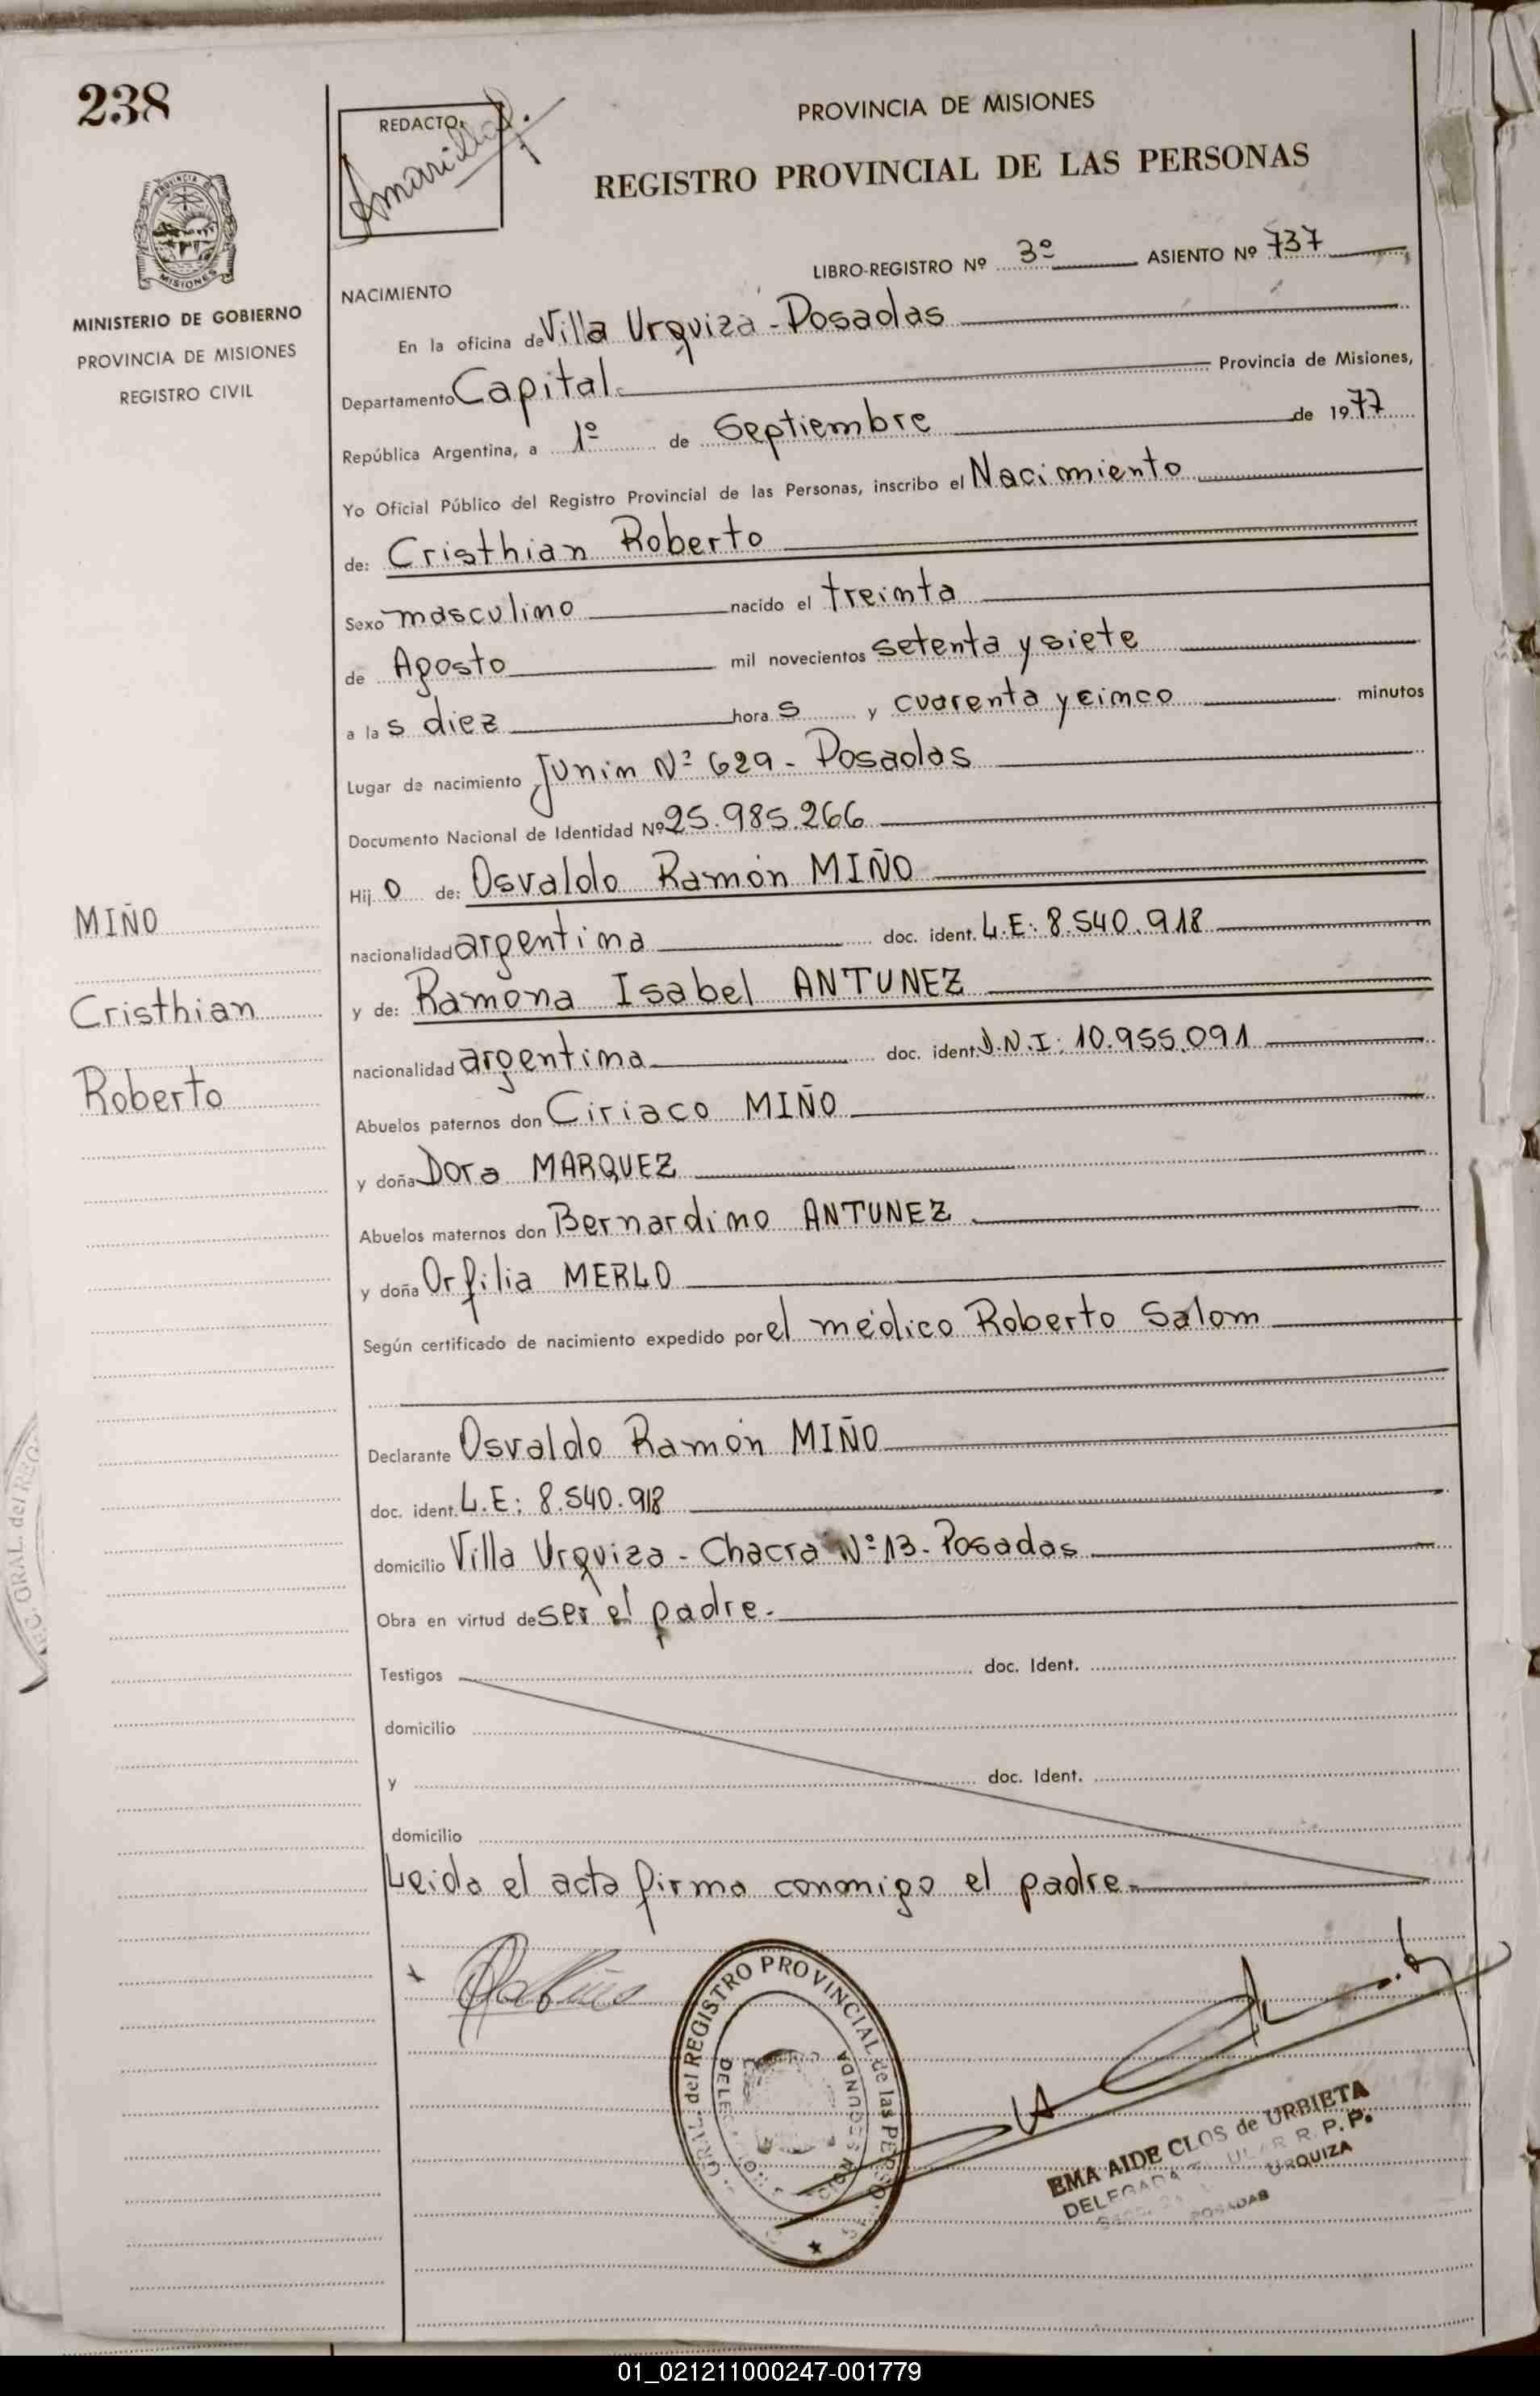 238
REDACTO:
PROVINCIA DE MISIONES
REGISTRO PROVINCIAL DE LAS PERSONAS
PROVINCIA DE
MISIONES
MINISTERIO DE GOBIERNO
PROVINCIA DE MISIONES
REGISTRO CIVIL
LIBRO-REGISTRO Nº 3º ASIENTO Nº 737
NACIMIENTO
En la oficina de Villa Urquiza - Posadas
Departamento Capital Provincia de Misiones,
República Argentina, a 1º de Septiembre de 1977
Yo Oficial Público del Registro Provincial de las Personas, inscribo el Nacimiento
de: Cristhian Roberto
Sexo masculino nacido el treinta
de Agosto mil novecientos setenta y siete
a las diez horas y cuarenta y cinco minutos
Lugar de nacimiento Junin Nº 629 - Posadas
Documento Nacional de Identidad Nº 25.985.266
Hijo de: Osvaldo Ramón MIÑO
nacionalidad argentina doc. ident. L.E: 8.540.918
y de: Ramona Isabel ANTUNEZ
nacionalidad argentina doc. ident. D.N.I: 10.955.091
Abuelos paternos don Ciriaco MIÑO
y doña Dora MARQUEZ
Abuelos maternos don Bernardino ANTUNEZ
y doña Orfilia MERLO
Según certificado de nacimiento expedido por el médico Roberto Salom
Declarante Osvaldo Ramón MIÑO
doc. ident. L.E: 8.540.918
domicilio Villa Urquiza - Chacra Nº 13 - Posadas
Obra en virtud de ser el padre.
Testigos doc. Ident.
domicilio
y doc. Ident.
domicilio
Leida el acta firma conmigo el padre
MIÑO
Cristhian
Roberto
GRAL. del REGISTRO PROVINCIAL de las
SEGUNDA
EMA AIDE CLOS de URBIETA
DELEGADA R. R. P. P.
URQUIZA
POSADAS
GRAL. del
01_021211000247-001779